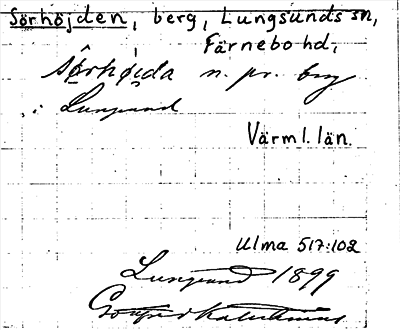 Sörhöjden, berg, Lungsunds sn,
Färnebo hd,
n. pr. berg
i Lungsund
Värml. län.
Ulma 517:102
Lungsund 1899
Gottfrid Kallstenius